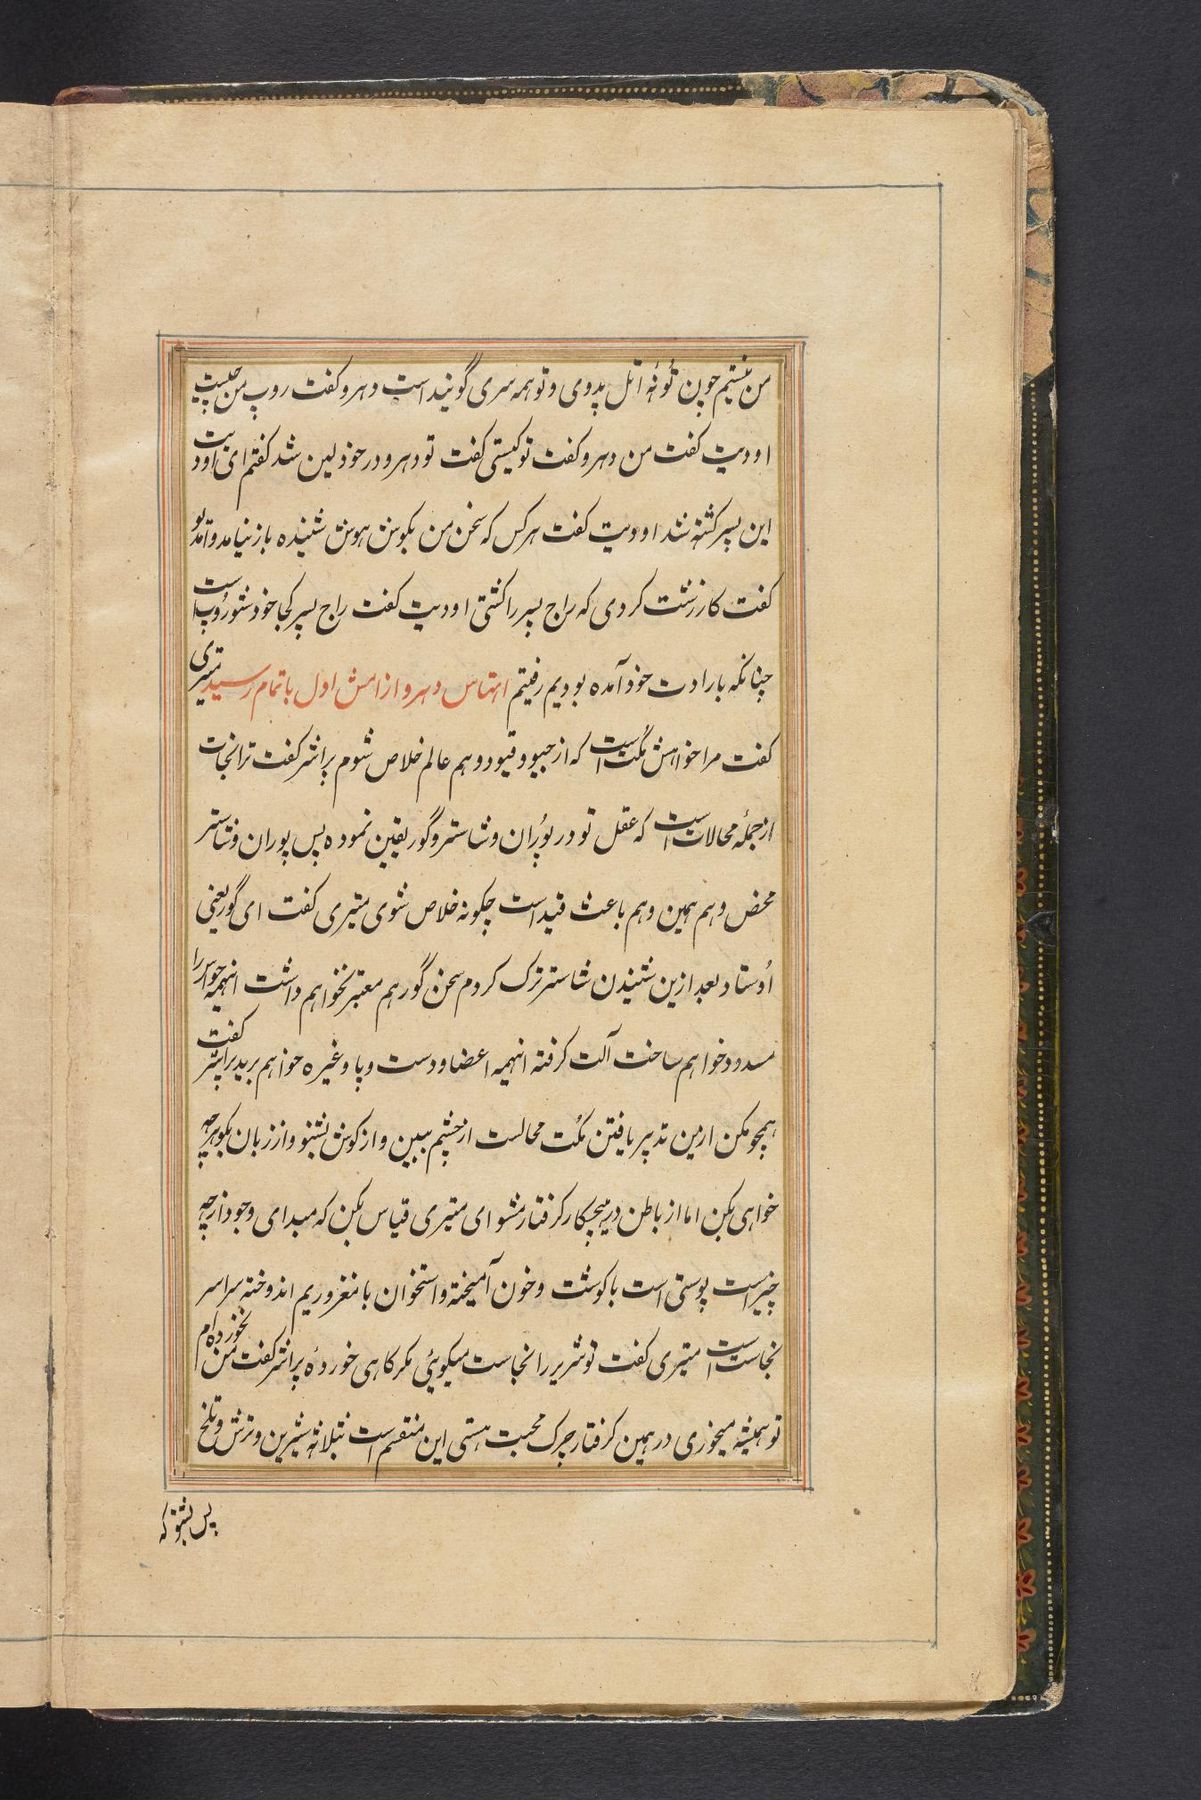 من نیستم چون تو نهٔ اتل پدوی و تو همه سری گویند است دهرو گفت روپ من چیست
اودیت گفت من دهرو گفت تو کیستی گفت تو دهرو در خود لین شد گفتم ای اودیت
این پسر کشته شد اودیت گفت هر کس که سخن من بگوش هوش شنیده باز نیامد و آمد
گفت کار زشت کردی که راج پسر را کشتی اودیت گفت راج پسر کجا خود شو روپ است
چنانکه بارادت خود آمده بودیم رفیتم اتهاس دهرو از امش اول باتمام رسید میتری
گفت مرا خواهش مُکت است که از جیو و قیود وهم عالم خلاص شوم پراشر گفت ترا نجات
از جملهٔ محالات است که عقل تو در پُوران و شاستر و گور یقین نموده پس پوران و شاستر
محض وهم همین وهم باعث قید است چگونه خلاص شوی میتری گفت ای گور یعنی
اُوستاد بعد ازین شنیدن شاستر ترک کردم سخن گور هم معتبر نخواهم داشت اینهمه حواس را
مسدود خواهم ساخت آلت گرفته اینهمه اعضا و دست و پا و غیره خواهم برید پراشر گفت
همچو مکن ازین تدبیر یافتن مُکت محالست از چشم ببین و از گوش بشنو و از زبان بگو هرچه
خواهی بکن اما از باطن در هیچکار گرفتار مشو ای میتری قیاس بکن که مبدای وجود از چه
چیز است پوستی است با گوشت و خون آمیخته و استخوان با مغز و ریم اندوخته سراسر
نجاست است میتری گفت تو شریر را نجاست میگوئی مگر گاهی خوردهٔ پراشر گفت من نخورده ام
تو همیشه میخوری در همین گرفتار چرک محبت هستی این منقسم است بتلانه شیرین و ترش و تلخ
پس بشنو که